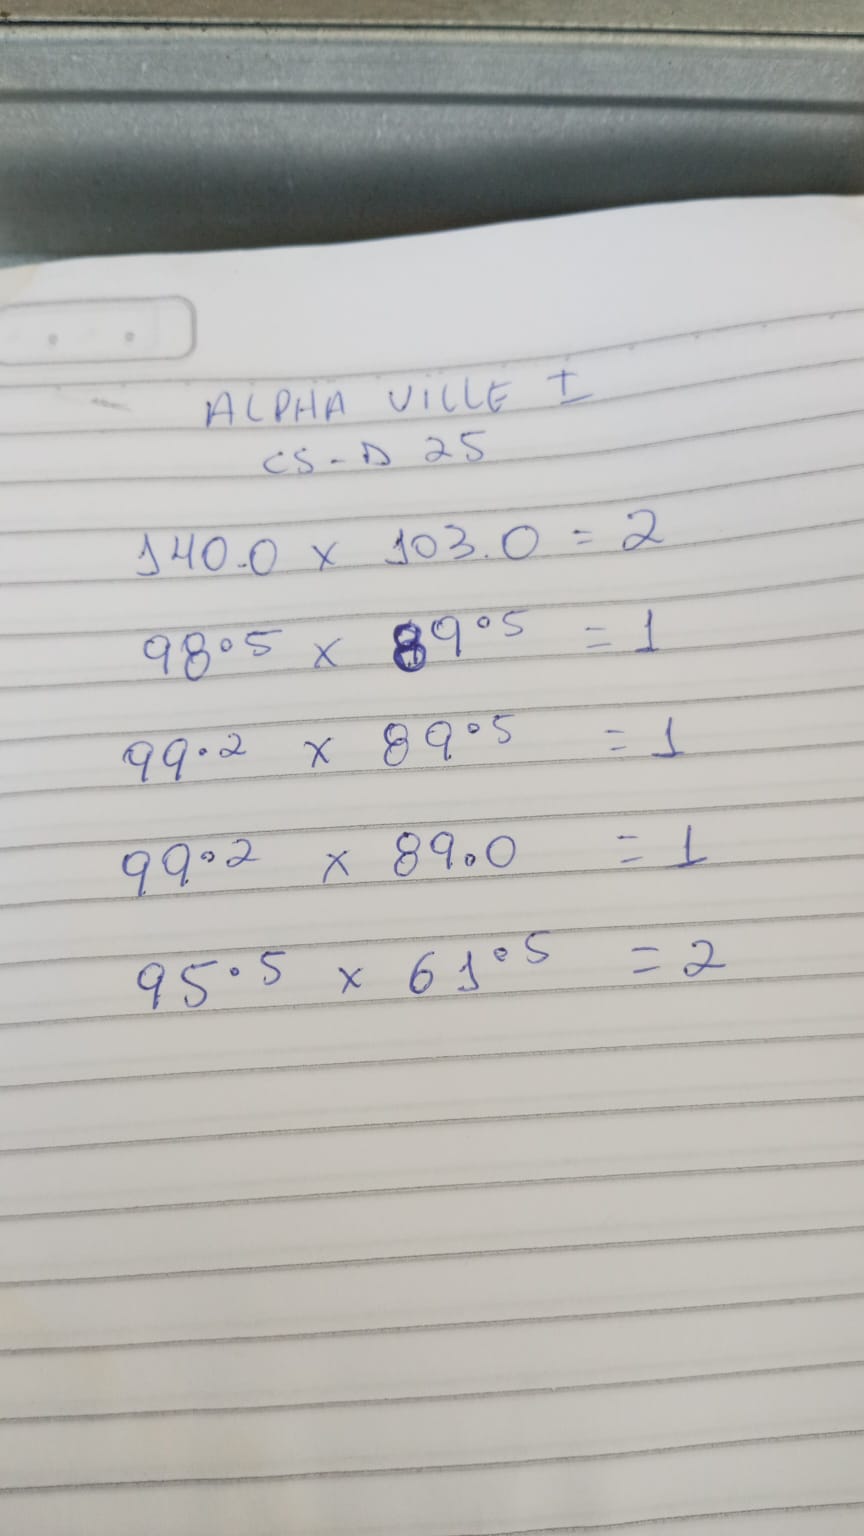 ALPHA VILLE I
CS-D 25
140.0 x 103.0 = 2
98.5 x 89.5 = 1
99.2 x 89.5 = 1
99.2 x 89.0 = 1
95.5 x 61.5 = 2